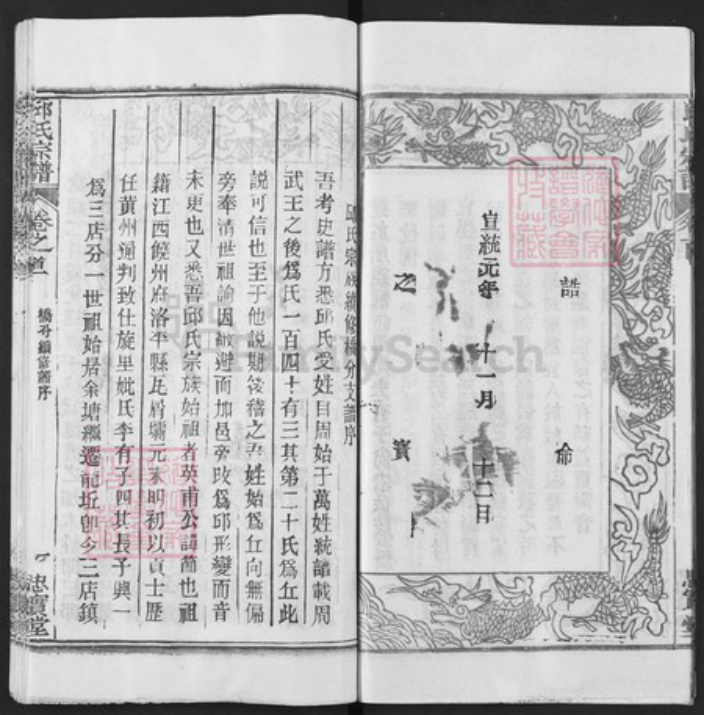 誥命
宣統元年十一月十二日
之寳
邱氏宗族續修橋分支譜序
吾考史譜方悉邱氏受姓目周始于萬姓統譜載周
武王之後爲氏一百四十有三其第二十氏爲丘此
説可信也至于他説期後稽之吾姓始爲丘向無偏
旁奉清世祖諭因避而加邑旁攺爲邱形變而音
未更也又悉吾邱氏宗族始祖者英甫公諱簡也祖
籍江西饒州府洛平縣瓦屑壩元末明初以貢士歷
任黃州通判致仕旋里妣氏李有子四其長子興一
爲三店分一世祖始居余塘繼遷龍坵卽今三店鎮
邱氏宗譜
卷之首
橋分續修譜序
忠實堂
FamilySearch